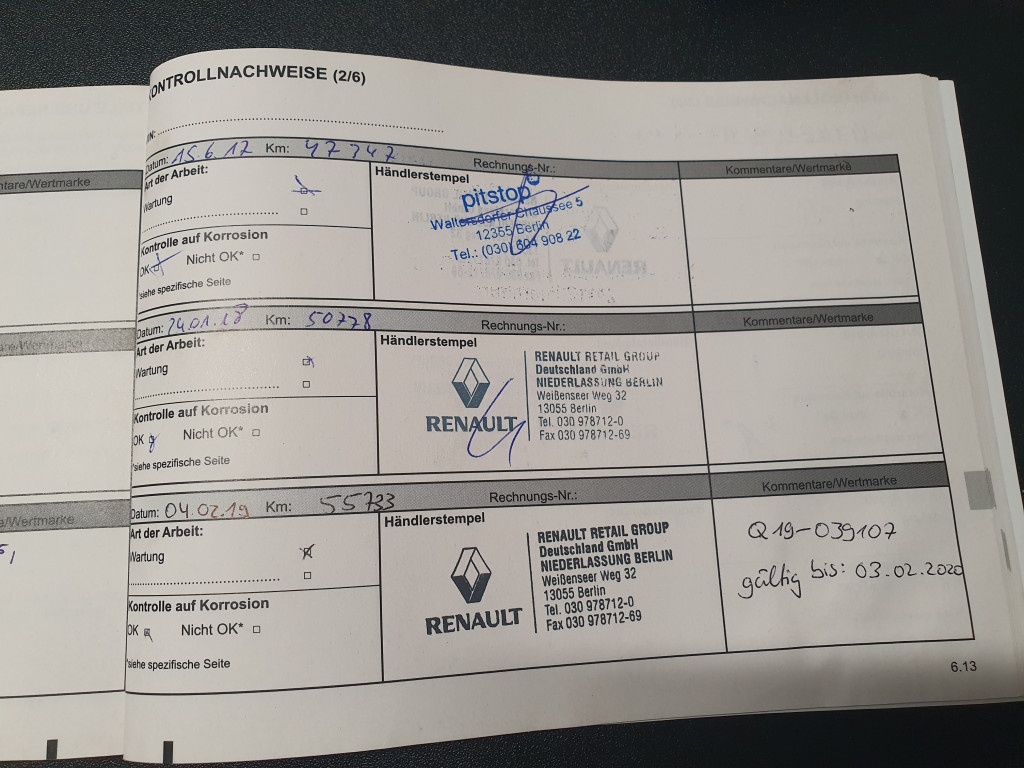 ntare/Wertmarke
e/Wertmarke
ONTROLLNACHWEISE (2/6)
IN:
Datum: 15.6.17 Km: 47347 Rechnungs-Nr.: Kommentare/Wertmarke
Art der Arbeit:
Wartung
Kontrolle auf Korrosion
OK Nicht OK*
*siehe spezifische Seite
Händlerstempel
pitstop
Waltersdorfer Chaussee 5
12355 Berlin
Tel.: (030) 604 908 22
Datum: 24.01.18 Km: 50778 Rechnungs-Nr.: Kommentare/Wertmarke
Art der Arbeit:
Wartung
Kontrolle auf Korrosion
OK Nicht OK*
*siehe spezifische Seite
Händlerstempel
RENAULT
RENAULT RETAIL GROUP
Deutschland GmbH
NIEDERLASSUNG BERLIN
Weißenseer Weg 32
13055 Berlin
Tel. 030 978712-0
Fax 030 978712-69
Datum: 04.02.19 Km: 55733 Rechnungs-Nr.: Kommentare/Wertmarke
Art der Arbeit:
Wartung
Kontrolle auf Korrosion
OK Nicht OK*
*siehe spezifische Seite
Händlerstempel
RENAULT
RENAULT RETAIL GROUP
Deutschland GmbH
NIEDERLASSUNG BERLIN
Weißenseer Weg 32
13055 Berlin
Tel. 030 978712-0
Fax 030 978712-69
Q19-039107
gültig bis: 03.02.2020
6.13